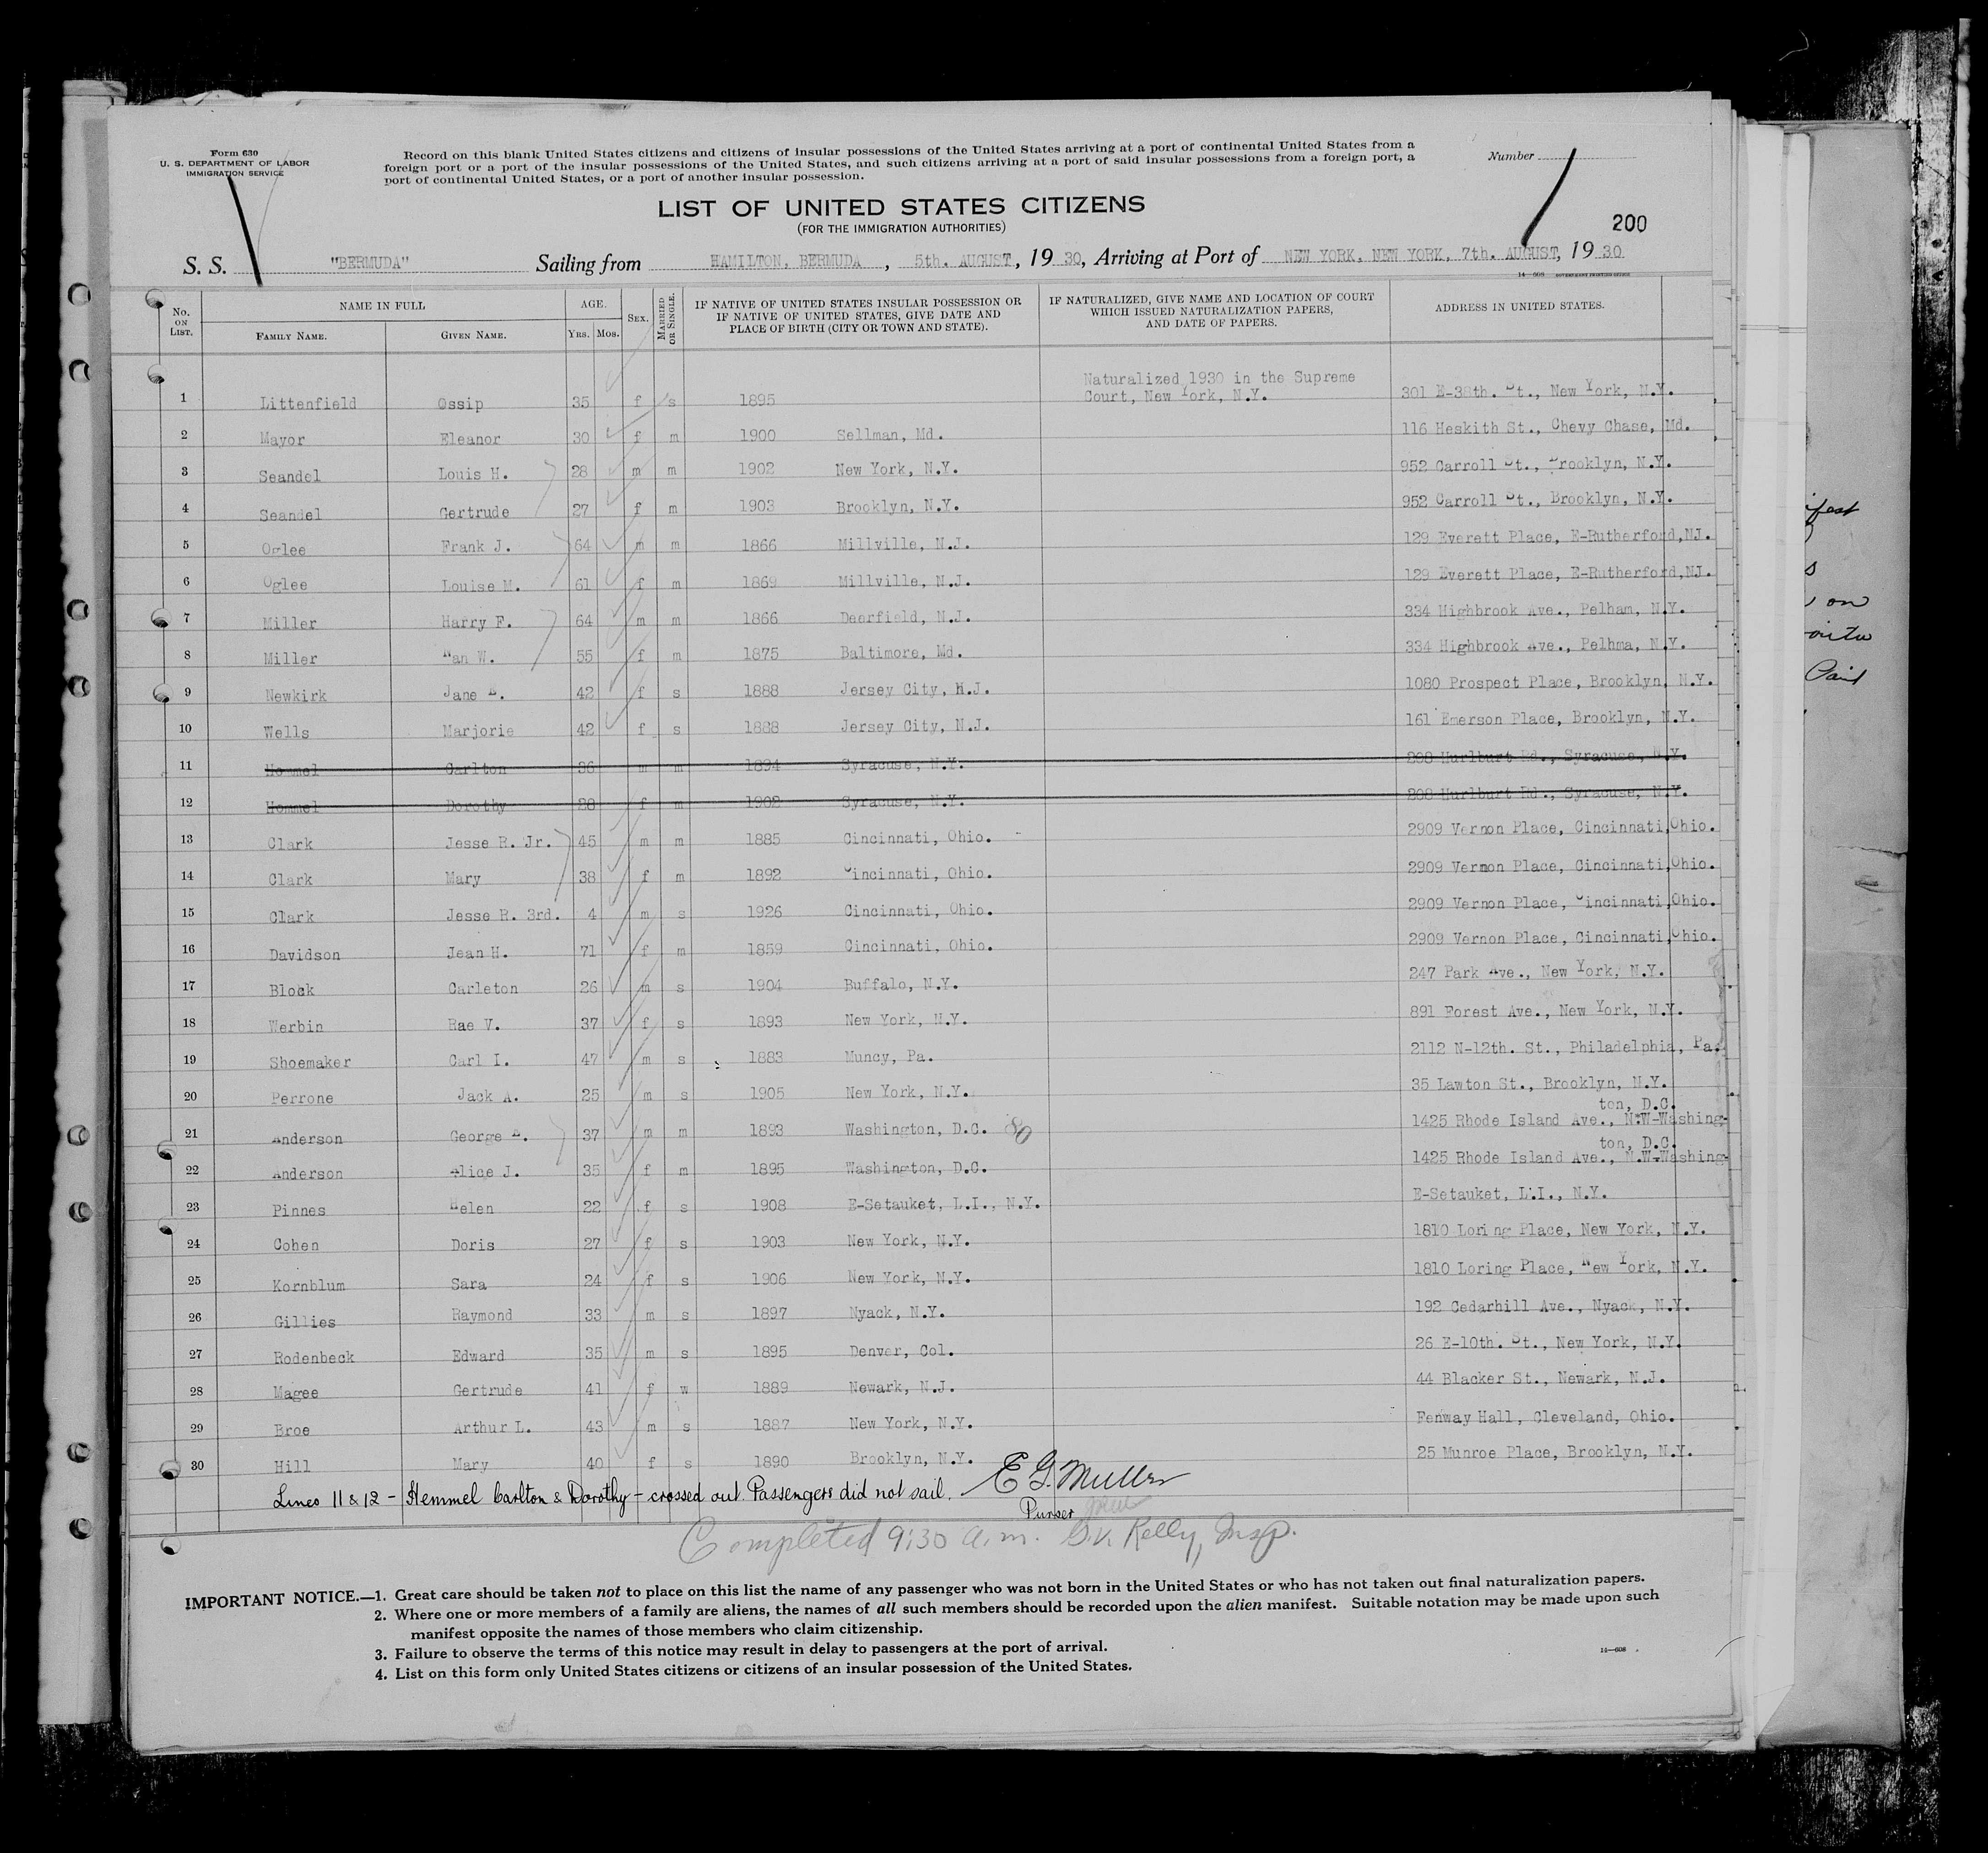 Form 630
U. S. DEPARTMENT OF LABOR
IMMIGRATION SERVICE
Record on this blank United States citizens and citizens of insular possessions of the United States arriving at a port of continental United States from a
foreign port or a port of the insular possessions of the United States, and such citizens arriving at a port of said insular possessions from a foreign port, a
port of continental United States, or a port of another insular possession.
Number
LIST OF UNITED STATES CITIZENS
(FOR THE IMMIGRATION AUTHORITIES)
200
S. S. "BERMUDA" Sailing from HAMILTON, BERMUDA, 5th. AUGUST, 19 30, Arriving at Port of NEW YORK, NEW YORK, 7th. AUGUST, 19 30
14—608 GOVERNMENT PRINTING OFFICE
No. ON LIST. NAME IN FULL AGE. SEX. MARRIED OR SINGLE. IF NATIVE OF UNITED STATES INSULAR POSSESSION OR IF NATIVE OF UNITED STATES, GIVE DATE AND PLACE OF BIRTH (CITY OR TOWN AND STATE). IF NATURALIZED, GIVE NAME AND LOCATION OF COURT WHICH ISSUED NATURALIZATION PAPERS, AND DATE OF PAPERS. ADDRESS IN UNITED STATES.
FAMILY NAME. GIVEN NAME. YRS. MOS.
1 Littenfield Ossip 35 f s 1895 Naturalized 1930 in the Supreme Court, New York, N.Y. 301 E-38th. St., New York, N.Y.
2 Mayor Eleanor 30 f m 1900 Sellman, Md. 116 Heskith St., Chevy Chase, Md.
3 Seandel Louis H. 28 m m 1902 New York, N.Y. 952 Carroll St., Brooklyn, N.Y.
4 Seandel Gertrude 27 f m 1903 Brooklyn, N.Y. 952 Carroll St., Brooklyn, N.Y.
5 Oglee Frank J. 64 m m 1866 Millville, N.J. 129 Everett Place, E-Rutherford,NJ.
6 Oglee Louise M. 61 f m 1869 Millville, N.J. 129 Everett Place, E-Rutherford,NJ.
7 Miller Harry F. 64 m m 1866 Deerfield, N.J. 334 Highbrook Ave., Pelham, N.Y.
8 Miller Nan W. 55 f m 1875 Baltimore, Md. 334 Highbrook Ave., Pelhma, N.Y.
9 Newkirk Jane E. 42 f s 1888 Jersey City, N.J. 1080 Prospect Place, Brooklyn, N.Y.
10 Wells Marjorie 42 f s 1888 Jersey City, N.J. 161 Emerson Place, Brooklyn, N.Y.
11 Hommel Carlton 36 m m 1894 Syracuse, N.Y. 208 Hurlburt Rd., Syracuse, N.Y.
12 Hommel Dorothy 28 f m 1902 Syracuse, N.Y. 208 Hurlburt Rd., Syracuse, N.Y.
13 Clark Jesse R. Jr. 45 m m 1885 Cincinnati, Ohio. 2909 Vernon Place, Cincinnati,Ohio.
14 Clark Mary 38 f m 1892 Cincinnati, Ohio. 2909 Vernon Place, Cincinnati,Ohio.
15 Clark Jesse R. 3rd. 4 m s 1926 Cincinnati, Ohio. 2909 Vernon Place, Cincinnati,Ohio.
16 Davidson Jean H. 71 f m 1859 Cincinnati, Ohio. 2909 Vernon Place, Cincinnati,Ohio.
17 Block Carleton 26 m s 1904 Buffalo, N.Y. 247 Park Ave., New York, N.Y.
18 Werbin Rae V. 37 f s 1893 New York, N.Y. 891 Forest Ave., New York, N.Y.
19 Shoemaker Carl I. 47 m s 1883 Muncy, Pa. 2112 N-12th. St., Philadelphia, Pa.
20 Perrone Jack A. 25 m s 1905 New York, N.Y. 35 Lawton St., Brooklyn, N.Y.
21 Anderson George E. 37 m m 1893 Washington, D.C. 80 1425 Rhode Island Ave., N.W-Washington, D.C.
22 Anderson Alice J. 35 f m 1895 Washington, D.C. 1425 Rhode Island Ave., N.W-Washington, D.C.
23 Pinnes Helen 22 f s 1908 E-Setauket, L.I., N.Y. E-Setauket, L.I., N.Y.
24 Cohen Doris 27 f s 1903 New York, N.Y. 1810 Loring Place, New York, N.Y.
25 Kornblum Sara 24 f s 1906 New York, N.Y. 1810 Loring Place, New York, N.Y.
26 Gillies Raymond 33 m s 1897 Nyack, N.Y. 192 Cedarhill Ave., Nyack, N.Y.
27 Rodenbeck Edward 35 m s 1895 Denver, Col. 26 E-10th. St., New York, N.Y.
28 Magee Gertrude 41 f w 1889 Newark, N.J. 44 Blacker St., Newark, N.J.
29 Broe Arthur L. 43 m s 1887 New York, N.Y. Fenway Hall, Cleveland, Ohio.
30 Hill Mary 40 f s 1890 Brooklyn, N.Y. 25 Munroe Place, Brooklyn, N.Y.
Lines 11 & 12 - Hemmel Carlton & Dorothy - crossed out. Passengers did not sail. E G. Muller
Purser
Completed 9:30 a.m. G.V. Kelly, Insp.
IMPORTANT NOTICE.—1. Great care should be taken not to place on this list the name of any passenger who was not born in the United States or who has not taken out final naturalization papers.
2. Where one or more members of a family are aliens, the names of all such members should be recorded upon the alien manifest. Suitable notation may be made upon such
manifest opposite the names of those members who claim citizenship.
3. Failure to observe the terms of this notice may result in delay to passengers at the port of arrival.
4. List on this form only United States citizens or citizens of an insular possession of the United States.
14—608